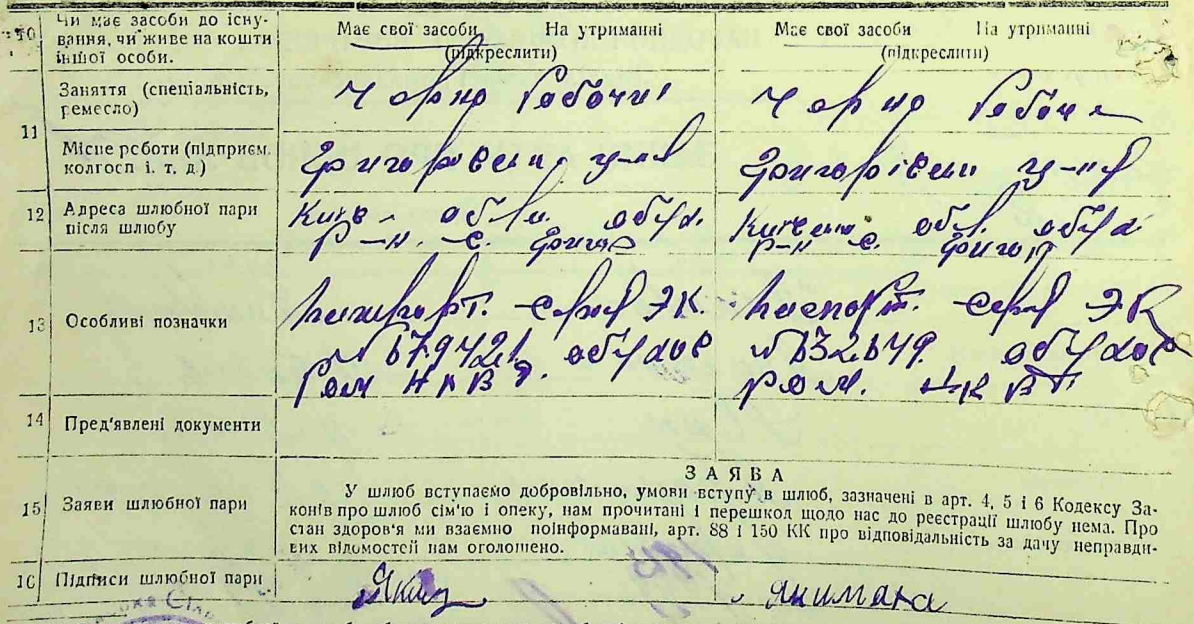 10 Чи має засоби до існування, чи живе на кошти іншої особи.
Має свої засоби На утриманні
(підкреслити)
Має свої засоби На утриманні
(підкреслити)
11 Заняття (спеціальність, ремесло)
Чорно Рабочий
Чорно Рабоча
Місце роботи (підприєм. колгосп і. т. д.)
12 Адреса шлюбної пари після шлюбу
обл. обуд.
р-н. с. Григор
обл. обуд
р-н с. Григор
13 Особливі позначки
паспорт. ЭК.
№ 679421 обухов
Ром НКВД.
паспорт. ЭК
№ 632649. обухов
Ром. НКВД
14 Пред'явлені документи
15 Заяви шлюбної пари
ЗАЯВА
У шлюб вступаємо добровільно, умови вступу в шлюб, зазначені в арт. 4, 5 і 6 Кодексу За-
конів про шлюб сім'ю і опеку, нам прочитані і перешкод щодо нас до реєстрації шлюбу нема. Про
стан здоров'я ми взаємно поінформавані, арт. 88 і 150 КК про відповідальність за дачу неправди-
вих відомостей нам оголошено.
16 Підписи шлюбної пари